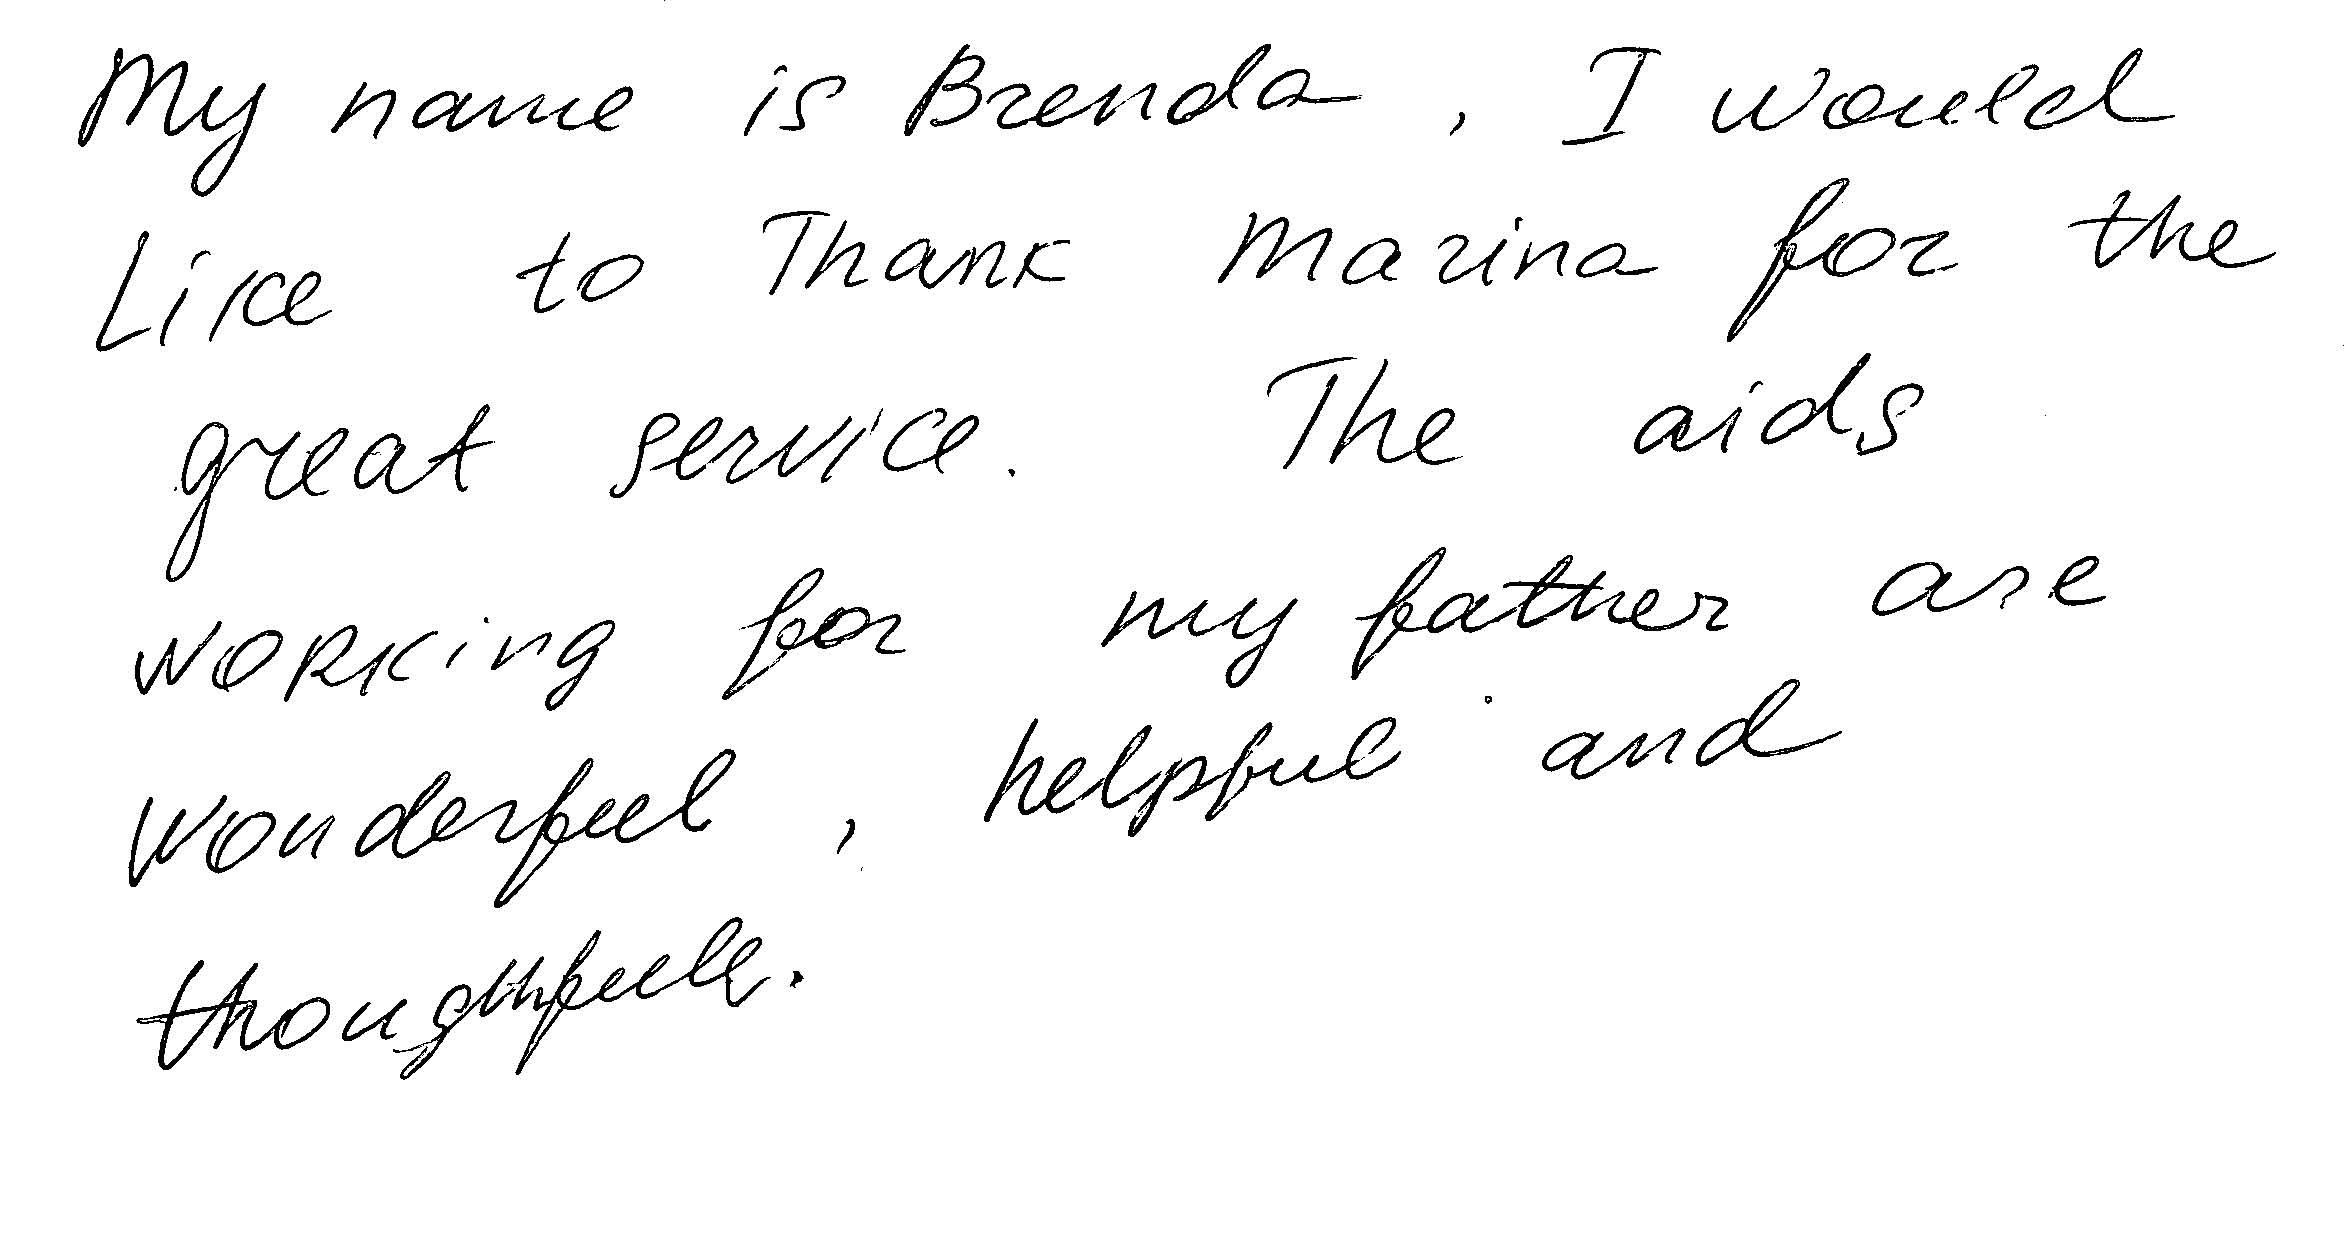 My name is Brenda, I would
Like to Thank Marina for the
great service. The aids
working for my father are
wonderful, helpful and
thoughtfull.